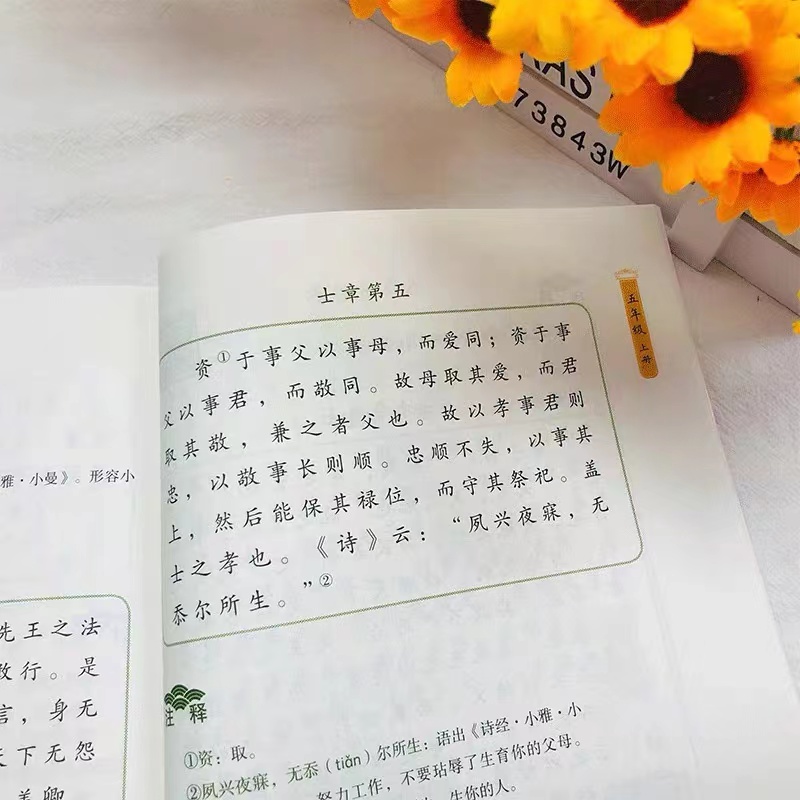 RAS
73843W
五年级 上册
雅·小曼》。形容小
先王之法
敢行。是
言，身无
天下无怨
盖卿
士章第五
资①于事父以事母，而爱同；资于事
父以事君，而敬同。故母取其爱，而君
取其敬，兼之者父也。故以孝事君则
忠，以敬事长则顺。忠顺不失，以事其
上，然后能保其禄位，而守其祭祀。盖
士之孝也。《诗》云：“夙兴夜寐，无
忝尔所生。”②
注释
①资：取。
②夙兴夜寐，无忝（tiǎn）尔所生：语出《诗经·小雅·小
努力工作，不要玷辱了生育你的父母。
生你的人。